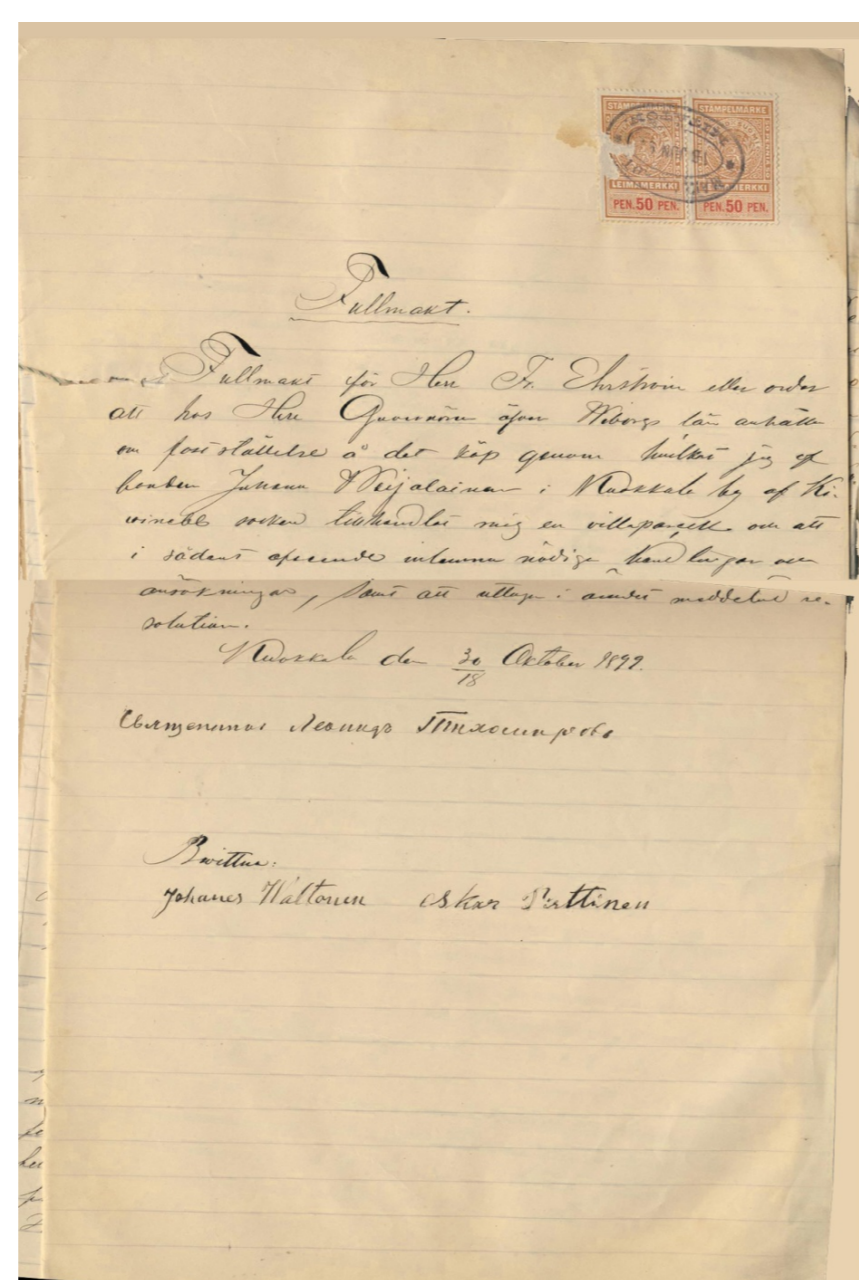 STÄMPELMÄRKE STÄMPELMÄRKE
LEIMAMERKKI MERKKI
PEN. 50 PEN. PEN. 50 PEN.
Fullmakt.
Fullmakt för Herr Fr. Ehrström eller order
att hos Herr Guvernören öfver Wiborgs län anhålla
om fastställelse å det köp genom hvilket jag af
bonden Juhana Weijalainen i Kuokkala by af Ki-
vinebb socken tillhandlat mig en villaparcell om att
i sådant afseende inlemna nödiga handlingar och
ansökningar, samt att uttaga i ämnet meddelad re-
solution.
Kuokkala den 30/18 Oktober 1899.
Священникъ Леонидъ Тихомировъ
Bevittna:
Johanes Waltonen Oskar Perttinen